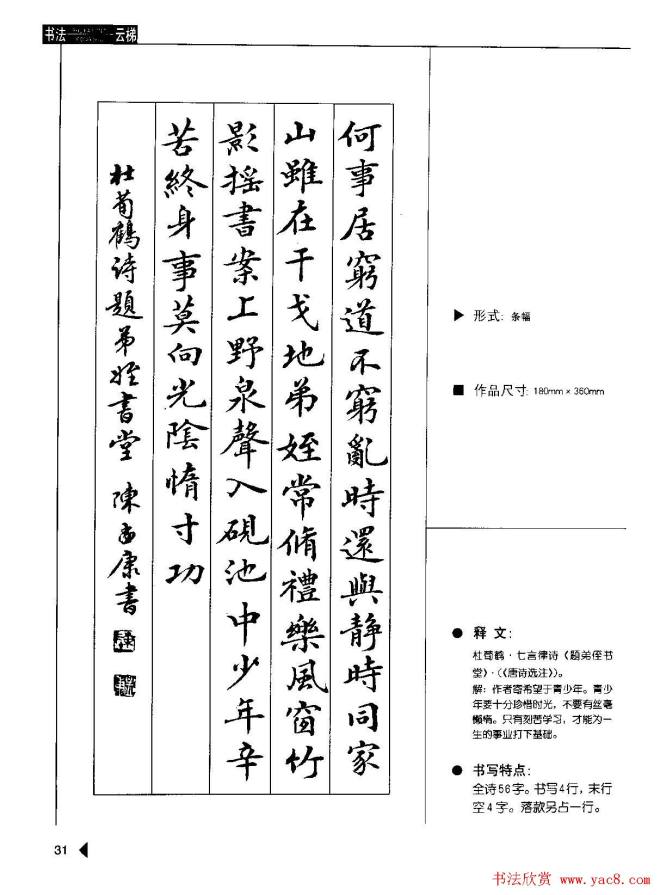 书法
云梯
何事居窮道不窮亂時還與静時同家
山雖在干戈地弟姪常脩禮樂風窗竹
影摇書案上野泉聲入硯池中少年辛
苦終身事莫向光陰惰寸功
杜荀鶴詩題弟姪書堂 陳 康書
▶ 形式: 条幅
■ 作品尺寸: 180mm × 360mm
● 释文:
杜荀鹤·七言律诗《题弟侄书
堂》·(《唐诗选注》)。
解: 作者寄希望于青少年。青少
年要十分珍惜时光，不要有丝毫
懒惰。只有刻苦学习，才能为一
生的事业打下基础。
● 书写特点:
全诗56字。书写4行，末行
空4字。落款另占一行。
31
书法欣赏 www.yac8.com